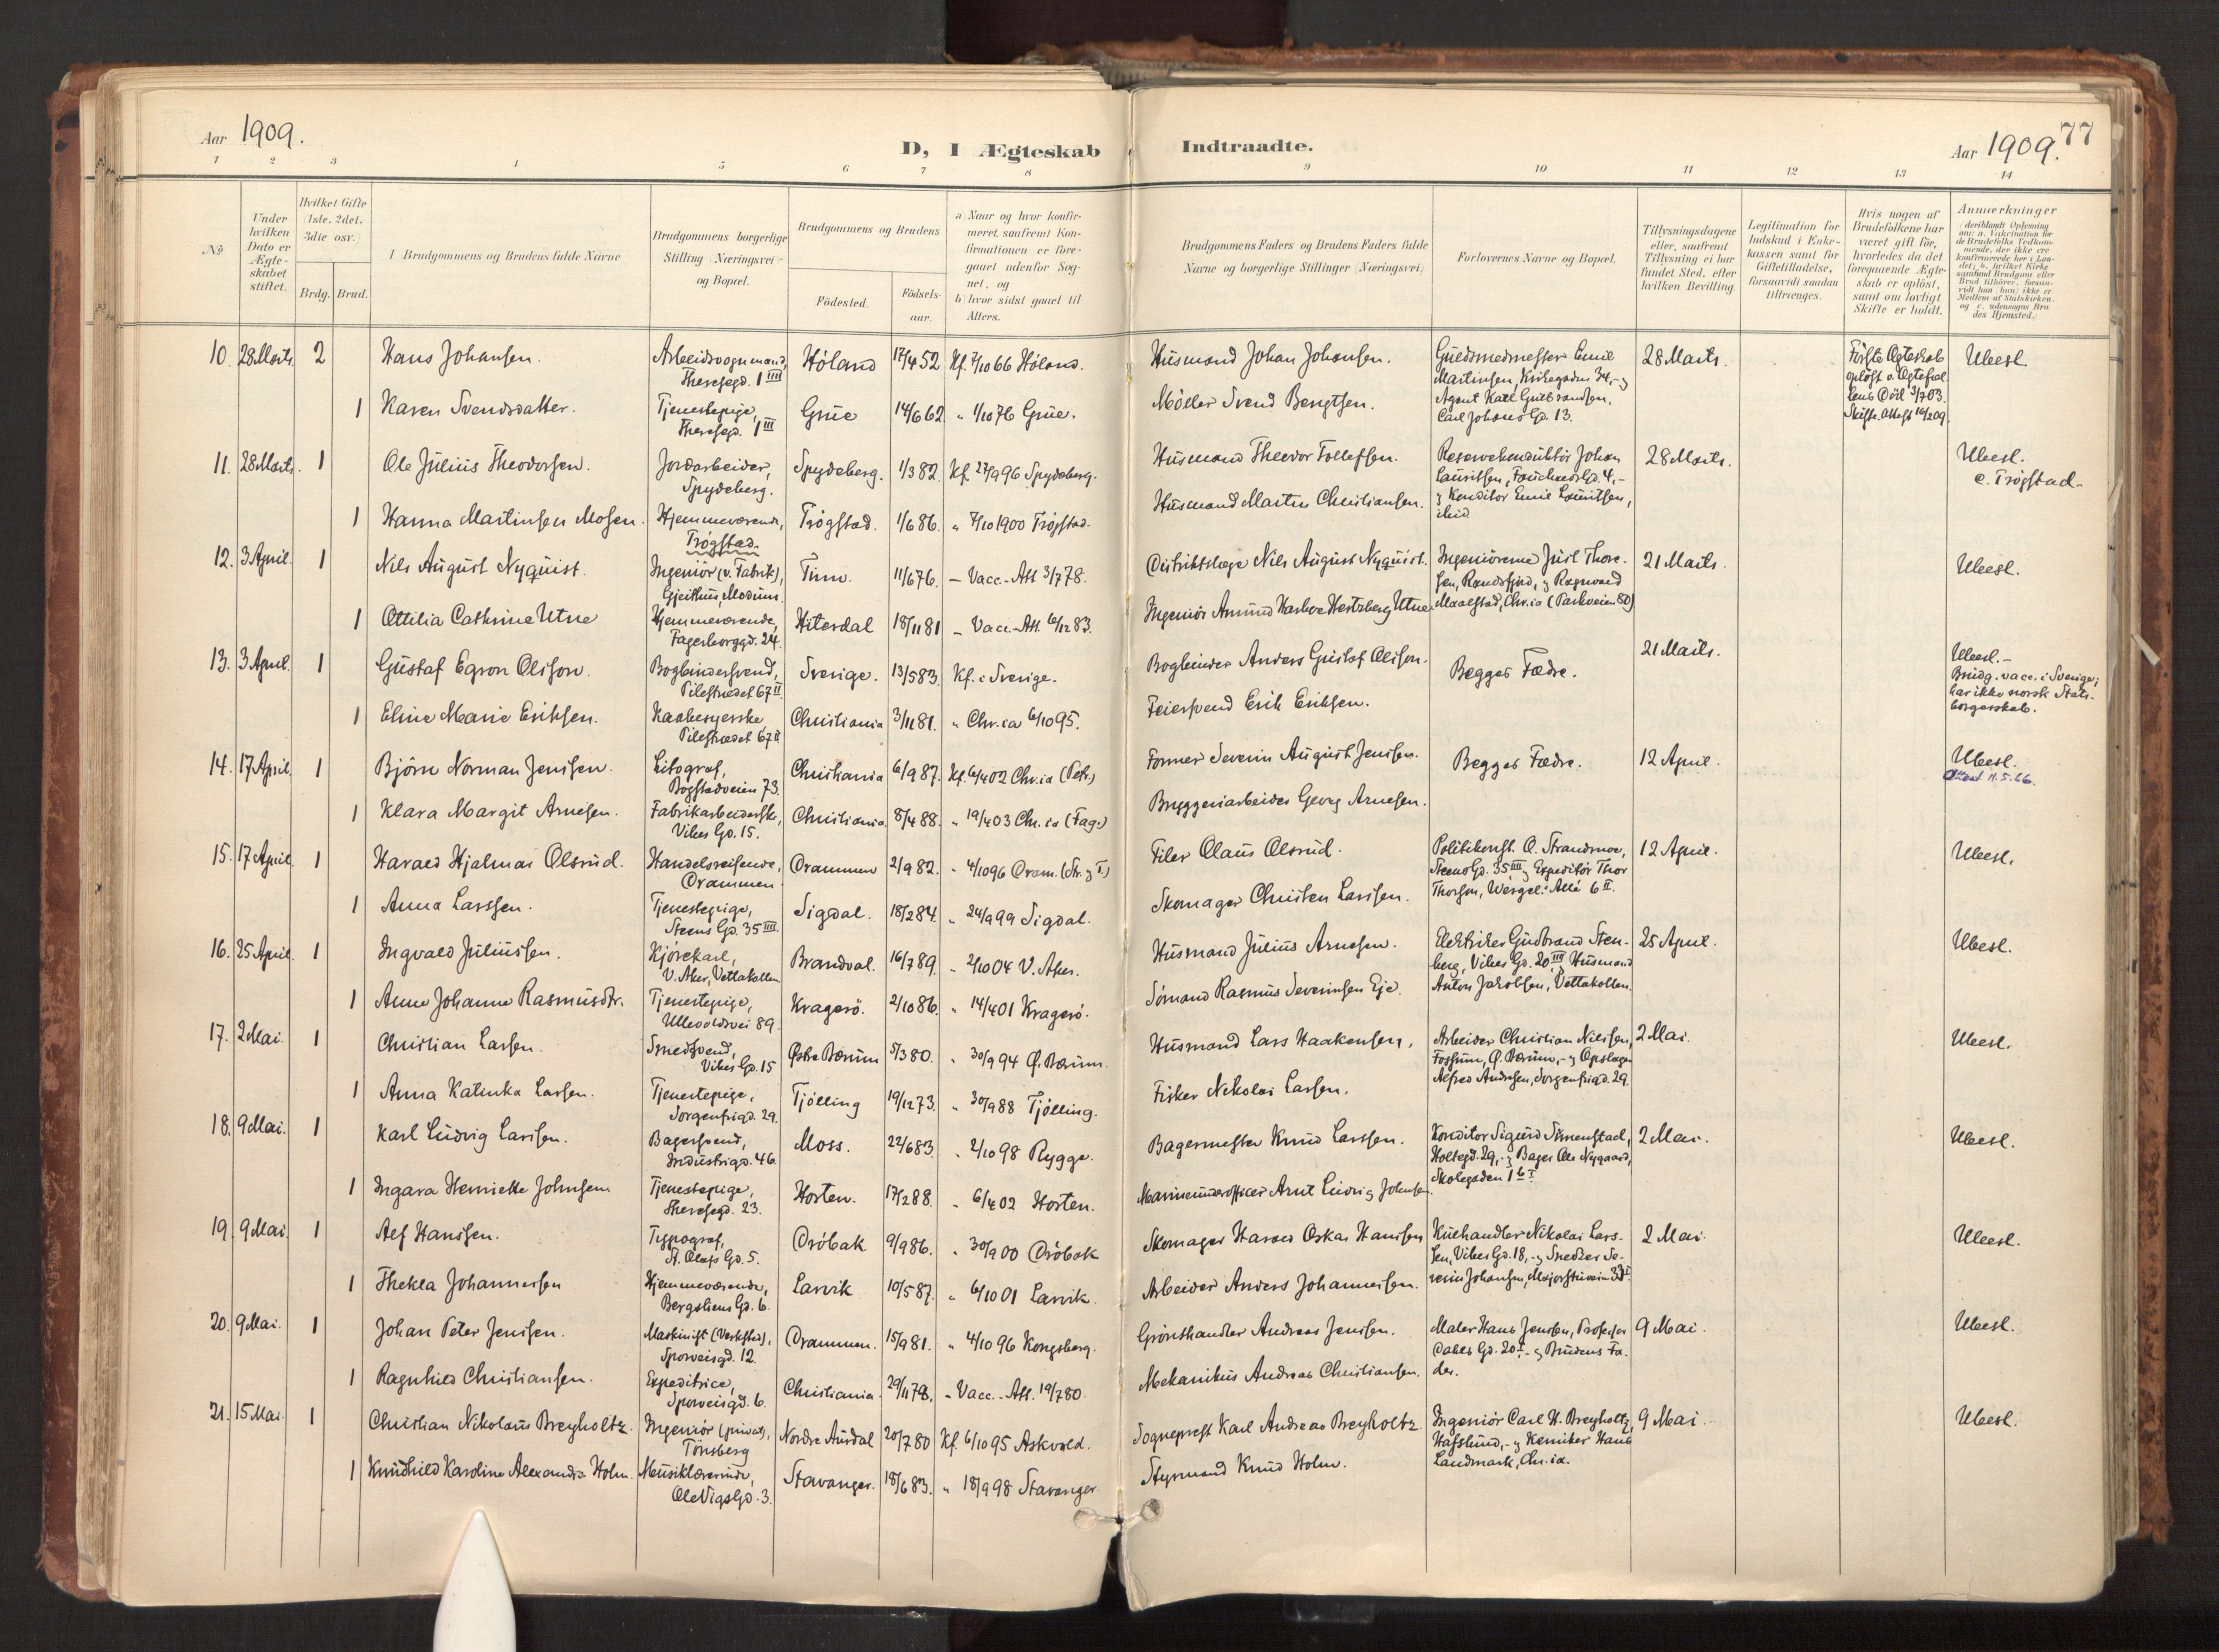 Aar 1909.
D, I Ægteskab
Indtraadte.
Aar 1909.
77
1 2 3 4 5 6 7 8 9 10 11 12 13 14
No
Under
hvilken
Dato er
Ægte-
skabet
stiftet.
Hvilket Gifte
(1ste, 2det,
3die osv.)
Brdg. Brud.
I Brudgommens og Brudens fulde Navne
Brudgommens borgerlige
Stilling (Næringsvei)
og Bopæl.
Brudgommens og Brudens
Födested.
Födsels-
aar.
a) Naar og hvor konfir-
meret, saafremt Kon-
firmationen er fore-
gaaet udenfor Sog-
net, og
b) hvor sidst gaaet til
Alters.
Brudgommens Faders og Brudens Faders fulde
Navne og borgerlige Stillinger (Næringsvei)
Forlovernes Navne og Bopæl.
Tillysningsdagene
eller, saafremt
Tillysning ei har
fundet Sted, efter
hvilken Bevilling.
Legitimation for
Indskud i Enke-
kassen samt for
Giftetilladelse,
forsaavidt saadan
tiltrænges.
Hvis nogen af
Brudefolkene har
været gift för,
hvorledes da det
foregaaende Ægte-
skab er oplöst,
samt om lovligt
Skifte er holdt.
Anmærkninger
10. 28 Marts. 2 Hans Johansen. Arbeidsvognmand, Höland 17/4 52 Kf. 7/10 66 Höland. Husmand Johan Johansen. Guldsmedmester Emil 28 Marts. Første Ægteskab Ubesl.
Theresegd. 1 IIII Martinsen, Kirkegaden 34,- og
1 Karen Svendsdatter. Tjenestepige, Grue 14/6 62 " 1/10 76 Grue. Møller Svend Bengtsen. Agent Karl Gulbrandsen,
Theresegd. 1 III Carl Johans Gd. 13.
11. 28 Marts. 1 Ole Julius Theodorsen. Jordarbeider, Spydeberg. 1/3 82. Kf. 27/9 96 Spydeberg. Husmand Theodor Tollefsen. Reservekonduktör Johan 28 Marts. Ubesl.
Spydeberg. c. Trögstad.
1 Hanna Martinsen Mosen. Hjemmeværende, Trögstad. 1/6 86. " 7/10 1900 Trögstad. Husmand Martin Christiansen. og Konditor Emil Lauritsen,
Trögstad. ibid.
12. 3 April. 1 Nils August Nyquist. Ingeniör (v. Fabrik), Tinn. 11/6 76. - Vacc.-Att. 3/7 78. Distriktslæge Nils August Nyquist. Ingeniörerne Just Thore- 21 Marts. Ubesl.
Gjeithus, Modum. sen, Randsfjord, og Ragnvald
1 Ottilia Cathrine Utne Hjemmeværende, Hitterdal 18/11 81 - Vacc.-Att. 6/12 83. Ingeniör Amund Hertzberg Utne. Chr.ia (Parkveien 80)
Fagerborggd. 24.
13. 3 April. 1 Gustaf Egron Olsson. Bogbindersvend, Sverige. 13/5 83. Kf. i Sverige. Bogbinder Anders Gustaf Olsson. Begges Fædre. 21 Marts. Ubesl.-
Pilestrædet 67 II Brudg. vacc. i Sverige;
har ikke norsk Stats-
borgerskab.
1 Eline Marie Eriksen. Kaabesyerske, Christiania 3/11 81. " Chr.ia 6/10 95. Feiersvend Erik Eriksen.
Pilestrædet 67 II
14. 17 April. 1 Björn Norman Jenssen. Litograf, Christiania 6/9 87. Kf. 6/4 02 Chr.ia (Petr.) Former Severin August Jenssen. Begges Fædre. 12 April. Ubesl.
Bogstadveien 73.
1 Klara Margit Arnesen. Fabrikarbeiderske, Christiania. 8/4 88. " 19/4 03 Chr.ia (Fag.) Bryggeriarbeider Georg Arnesen.
Vibes Gd. 15.
15. 17 April 1 Harald Hjalmar Olsrud. Handelsreisende, Drammen 2/9 82. " 4/10 96 Dram. Filer Olaus Olsrud. Politikonst. O. Strandmoe, 12 April. Ubesl.
Drammen Steens Gd. 35 IIII og Expeditör Thor
1 Anna Larssen. Tjenestepige, Sigdal. 18/2 84. " 24/9 99 Sigdal. Skomager Christen Larssen. Thorsen, Wergel. Allé 6 II.
Steens Gd. 35 IIII.
16. 25 April. 1 Ingvald Juliussen. Kjörekarl, Brandval. 16/7 89. " 2/10 04 V. Aker. Husmand Julius Arnesen. Elektriker Gudbrand Sten- 25 April. Ubesl.
V. Aker, Vettakollen berg, Vibes Gd. 20 III, Husmand
1 Anne Johanne Rasmusdtr. Tjenestepige, Kragerö. 2/10 86. " 14/4 01 Kragerö. Sömand Rasmus Severinsen Eje. Anton Jakobsen, Vettakollen.
Ullevoldsvei 89.
17. 2 Mai. 1 Christian Larsen. Smedsvend, Østre Bærum 5/3 80. " 30/9 94 Ø. Bærum. Husmand Lars Haakensen. Arbeider Christian Nilssen, 2 Mai. Ubesl.
Vibes Gd. 15 Fossum, Ø. Bærum,- og
1 Anna Katinka Larsen. Tjenestepige, Tjölling 19/12 73. " 30/9 88 Tjölling. Fisker Nikolai Larsen. Alfred Andresen, Sorgenfrigd. 29.
Sorgenfrigd. 29.
18. 9 Mai. 1 Karl Ludvig Larssen. Bagersvend, Moss. 22/6 83. " 2/10 98 Rygge. Bagermester Knud Larssen. Konditor Sigurd Simenstad, 2 Mai. Ubesl.
Industrigd. 46. Holtegd. 29,- og Bager Ole Nygaard,
1 Ingara Henriette Johnsen. Tjenestepige, Horten. 17/2 88. " 6/4 02 Horten. Marineunderofficer Arnt Ludvig Johnsen. Skolegaden 1 b I
Theresegd. 23.
19. 9 Mai. 1 Alf Hanssen. Typograf, Dröbak 9/9 86. " 30/9 00 Dröbak Skomager Harald Oskar Hanssen Kulhandler Nikolai Lars- 2 Mai. Ubesl.
St. Olafs Gd. 5. sen, Vibes Gd. 18,- og Snedker Se-
1 Thekla Johannessen Hjemmeværende, Larvik 10/5 87. " 6/10 01 Larvik. Arbeider Anders Johannessen. verin Johansen, Majorstuveien 33 I.
Bergsliens Gd. 6.
20. 9 Mai. 1 Johan Peter Jenssen. Maskinist (Verksted), Drammen. 15/9 81. " 4/10 96 Kongsberg. Grönthandler Andreas Jenssen. Maler Hans Jenssen, Professor 9 Mai. Ubesl.
Sporveisgd. 12. Dahls Gd. 20 I,- og Brudens Fa-
1 Ragnhild Christiansen. Expeditrice, Christiania. 29/11 78. - Vacc.-Att. 19/7 80. Mekanikus Andreas Christiansen. der.
Sporveisgd. 6.
21. 15 Mai. 1 Christian Nikolaus Breyholtz. Ingeniör (privat), Nordre Aurdal 20/7 80 Kf. 6/10 95 Askvold. Sogneprest Karl Andreas Breyholtz Ingeniör Carl H. Breyholtz, 9 Mai. Ubesl.
Tönsberg Hafslund,- og Kemiker Hans
1 Knudhild Karoline Alexandra Holm. Musiklærerinde, Stavanger. 18/6 83. " 18/9 98 Stavanger Styrmand Knud Holm. Landmark, Chr.ia.
Ole Vigs Gd. 3.